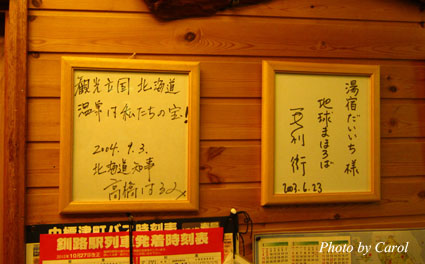 観光立国 北海道
温泉は私たちの宝!
2004.9.3.
北海道知事
高橋はるみ
湯宿だいいち 様
地球まほろば
2003.6.23
中標津町バス時刻表
釧路駅列車発着時刻表
Photo by Carol